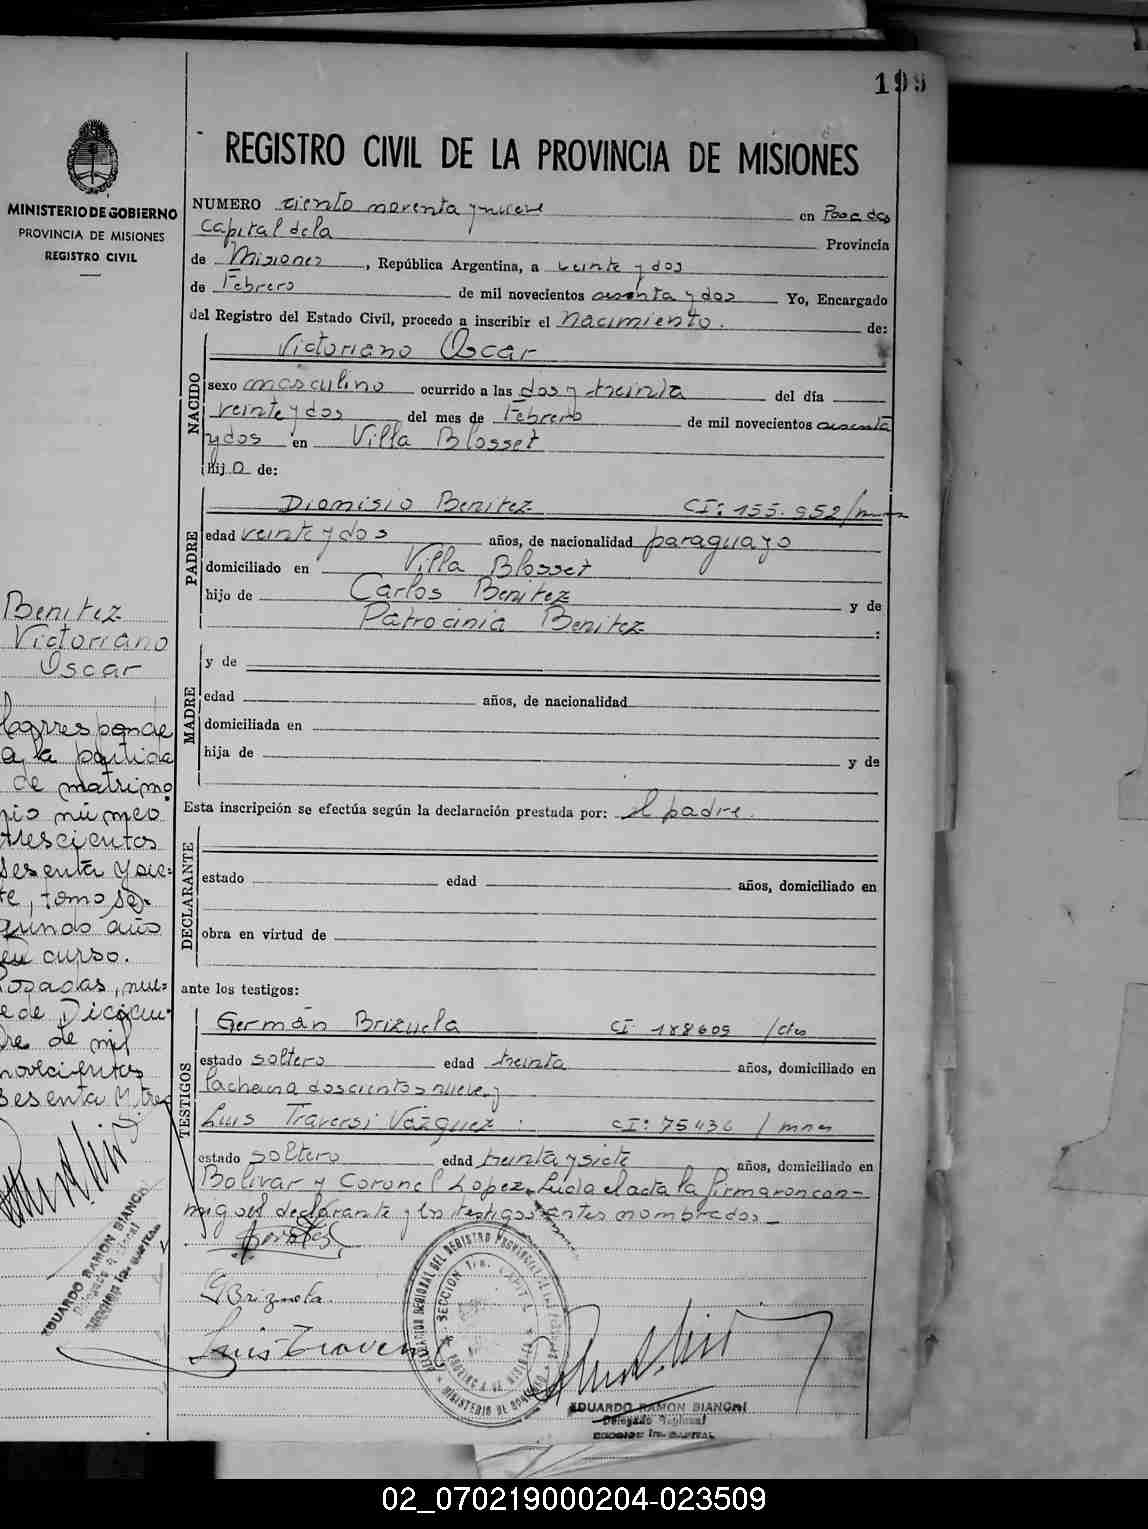 199
REGISTRO CIVIL DE LA PROVINCIA DE MISIONES
MINISTERIO DE GOBIERNO
PROVINCIA DE MISIONES
REGISTRO CIVIL
NUMERO ciento noventa y nueve en Posadas
Capital de la Provincia
de Misiones, República Argentina, a veinte y dos
de Febrero de mil novecientos sesenta y dos Yo, Encargado
del Registro del Estado Civil, procedo a inscribir el nacimiento. de:
NACIDO
Victoriano Oscar
sexo masculino ocurrido a las dos y treinta del día
veinte y dos del mes de Febrero de mil novecientos sesenta
y dos en Villa Blosset
hijo de:
PADRE
Dionisio Benitez CI: 155.952/mnes
edad veinte y dos años, de nacionalidad paraguayo
domiciliado en Villa Blosset
hijo de Carlos Benitez y de
Patrocinia Benitez :
MADRE
y de
edad años, de nacionalidad
domiciliada en
hija de y de
Esta inscripción se efectúa según la declaración prestada por: el padre.
DECLARANTE
estado edad años, domiciliado en
obra en virtud de
ante los testigos:
TESTIGOS
Germán Brizuela CI 188609
estado soltero edad treinta años, domiciliado en
Lachana doscientos nueve y
Luis Traversi Vázquez. CI: 75436 / mnes
estado soltero edad treinta y siete años, domiciliado en
Bolivar y Coronel Lopez. Leida el acta la firmaron con-
migo el declarante y los testigos antes nombrados_
Benitez
Victoriano
Oscar
Corresponde
a la partida
de matrimo
nio número
trescientos
sesenta y sie-
te, tomo se-
gundo año
en curso.
Posadas, nue-
ve de Diciem-
bre de mil
novecientos
sesenta y tres
EDUARDO RAMON BIANCHI
Delegado Regional
SECCION 1ra. CAPITAL
GBrizuela.
Luis Traversi
DELEGACION REGIONAL DEL REGISTRO PROVINCIAL DE LAS PERSONAS
SECCION 1ra. CAPITAL
PROVINCIA DE MISIONES
MINISTERIO DE GOBIERNO
EDUARDO RAMON BIANCHI
Delegado Regional
SECCION 1ra. CAPITAL
02_070219000204-023509